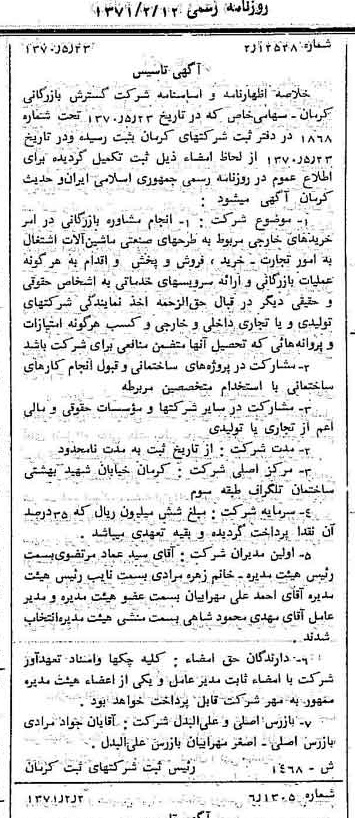 روزنامه رسمی ۱۳۷۱/۲/۱۲
شماره ۲/۱۲۵۲۸ ۱۳۷۰/۵/۲۳
آگهی تاسیس
خلاصه اظهارنامه و اساسنامه شرکت گسترش بازرگانی
کرمان - سهامی‌خاص که در تاریخ ۱۳۷۰/۵/۲۳ تحت شماره
۱۸۶۸ در دفتر ثبت شرکتهای کرمان بثبت رسیده ودر تاریخ
۱۳۷۰/۵/۲۳ از لحاظ امضاء ذیل ثبت تکمیل گردیده برای
اطلاع عموم در روزنامه رسمی جمهوری اسلامی ایران‌و حدیث
کرمان آگهی میشود :
۱- موضوع شرکت : ۱- انجام مشاوره بازرگانی در امر
خریدهای خارجی مربوط به طرحهای صنعتی ماشین‌آلات اشتغال
به امور تجارت - خرید ، فروش و پخش و اقدام به هرگونه
عملیات بازرگانی و ارائه سرویسهای خدماتی به اشخاص حقوقی
و حقیقی دیگر در قبال حق‌الزحمه اخذ نمایندگی شرکتهای
تولیدی و یا تجاری داخلی و خارجی و کسب هرگونه امتیازات
و پروانه‌هائی که تحصیل آنها متضمن منافعی برای شرکت باشد
۲- مشارکت در پروژه‌های ساختمانی و قبول انجام کارهای
ساختمانی با استخدام متخصصین مربوطه
۳- مشارکت در سایر شرکتها و مؤسسات حقوقی و مالی
اعم از تجاری یا تولیدی
۲- مدت شرکت : از تاریخ ثبت به مدت نامحدود
۳- مرکز اصلی شرکت : کرمان خیابان شهید بهشتی
ساختمان تلگراف طبقه سوم
۴- سرمایه شرکت : مبلغ شش میلیون ریال که ۳۵درصد
آن نقدا پرداخت گردیده و بقیه تعهدی میباشد .
۵- اولین مدیران شرکت : آقای سید عماد مرتضوی‌بسمت
رئیس هیئت مدیره - خانم زهره مرادی بسمت نایب رئیس هیئت
مدیره آقای احمد علی مهرابیان بسمت عضو هیئت مدیره و مدیر
عامل آقای مهدی محمود شاهی بسمت منشی هیئت مدیره‌انتخاب
شدند .
۶- دارندگان حق امضاء : کلیه چکها واسناد تعهدآور
شرکت با امضاء ثابت مدیر عامل و یکی از اعضاء هیئت مدیره
ممهور به مهر شرکت قابل پرداخت خواهد بود .
۷- بازرس اصلی و علی‌البدل شرکت : آقایان جواد مرادی
بازرس اصلی - اصغر مهرابیان بازرس علی‌البدل .
ش - ۱۴۶۸ رئیس ثبت شرکتهای ثبت کرمان
شماره ۶/۱۳۰۵ ۱۳۷۱/۲/۲